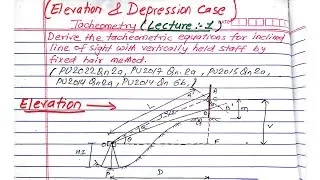 (Elevation & Depression Case)
Tacheometry (Lecture :- 1)
Derive the tacheometric equations for inclined
line of sight with vertically held staff by
fixed hair method.
(PU2022 Qn.2a, PU2017 Qn.2a, PU2015 Qn2a
PU2014 Qn2a, PU2014 Qn 6b.)
Elevation
L
A
m
V
F
HI
P
D